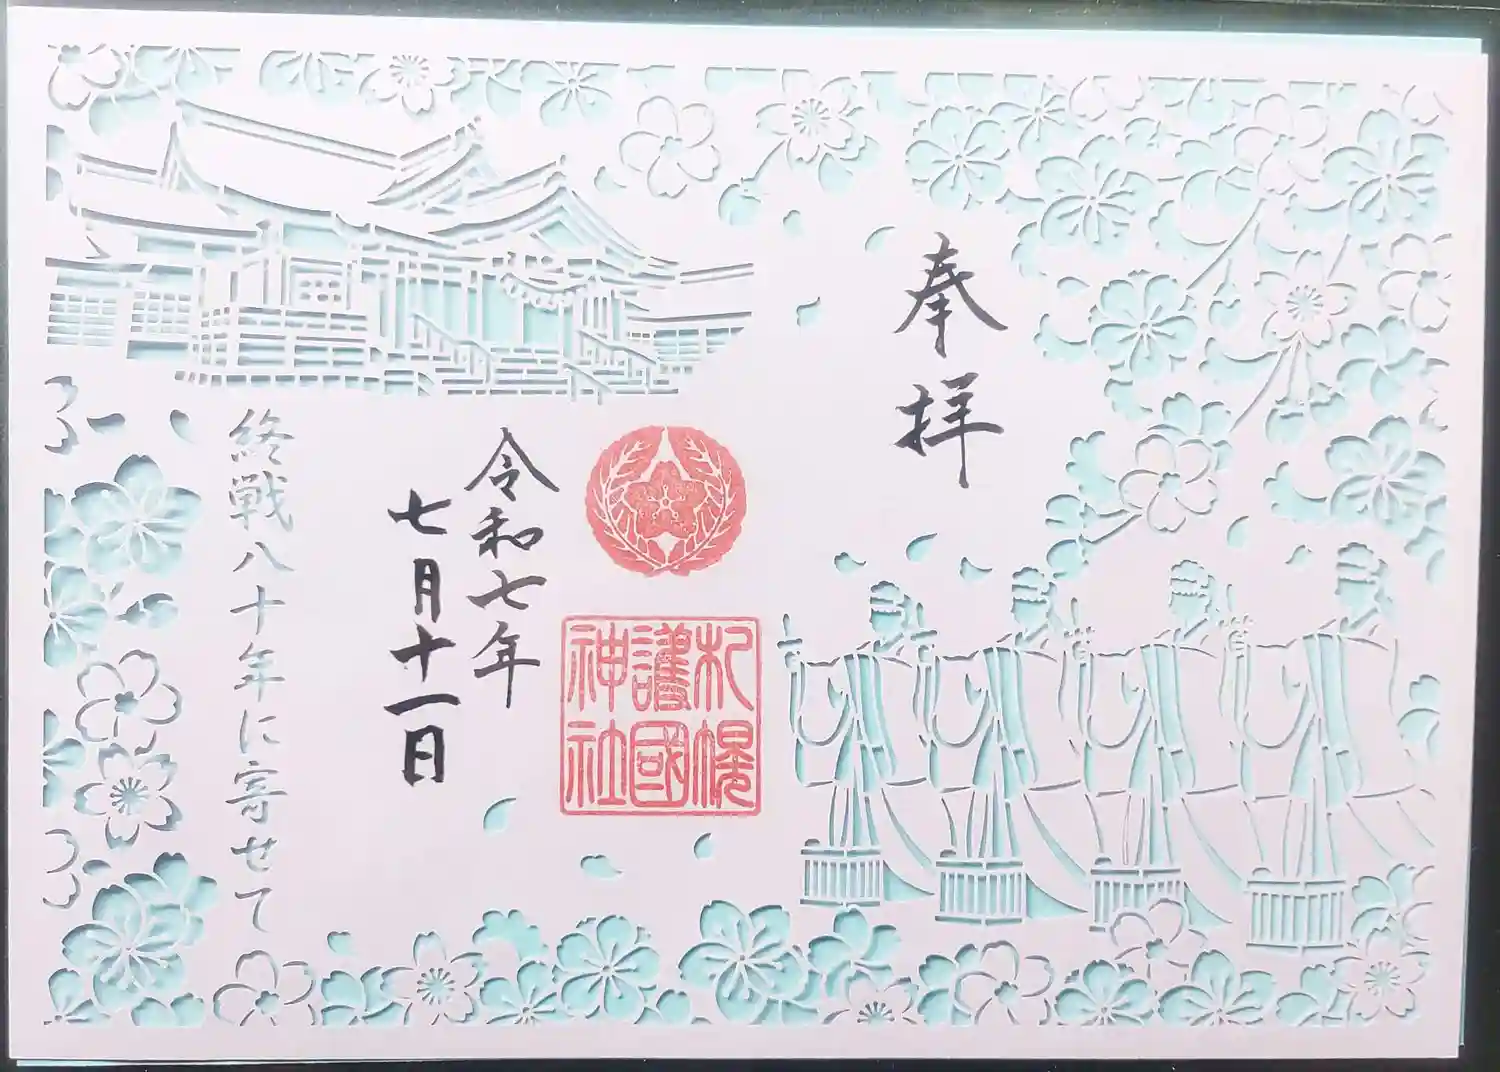 奉拝
札幌
護國
神社
令和七年
七月十一日
終戦八十年に寄せて